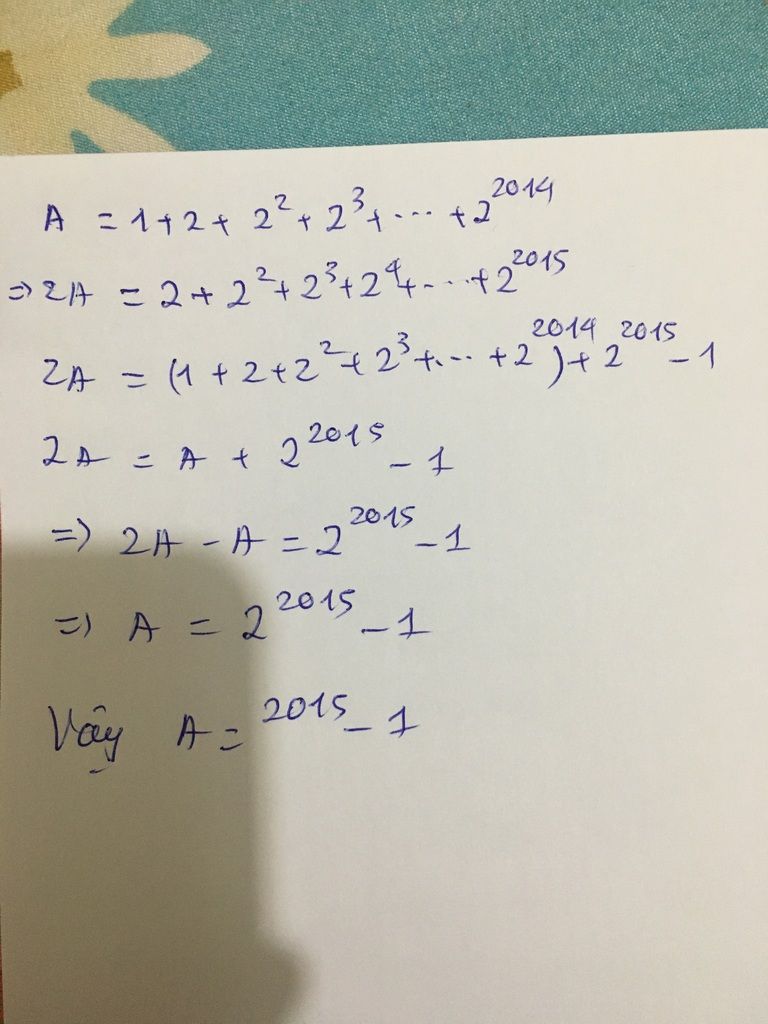 A = 1 + 2 + 2² + 2³ + ... + 2²⁰¹⁴
=> 2A = 2 + 2² + 2³ + 2⁴ + ... + 2²⁰¹⁵
2A = (1 + 2 + 2² + 2³ + ... + 2²⁰¹⁴) + 2²⁰¹⁵ - 1
2A = A + 2²⁰¹⁵ - 1
=> 2A - A = 2²⁰¹⁵ - 1
=> A = 2²⁰¹⁵ - 1
Vậy A = ²⁰¹⁵ - 1